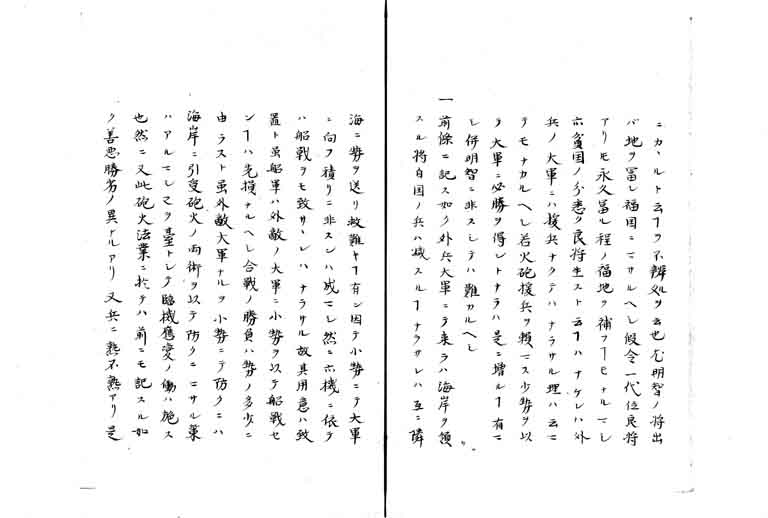 ニカヽルト云フヿヲ不辨処ヲ云也尤明智ノ将出
バ地ヲ冨シ福国ニコサルヘシ假令一代位良将
アリモ永久冨ル程ノ福地ヲ補フヿモナルマシ
亦貧国ノ分悉ク良将生スト云ヿハナケレハ外
兵ノ大軍ニハ援兵ナクテハナラサル理ハ云ニ
テモナカルヘシ若火砲援兵ヲ頼マス少勢ヲ以
テ大軍ニ必勝ヲ得ントナラハ是ニ増ルヿ有マ
シ併明智ニ非スシテハ難カルヘシ
一前條ニ記ス如ク外兵大軍ニテ来ラハ海岸ヲ領
スル将自国ノ兵ハ減スルヿナラサレハ互ニ隣
海ニ勢ヲ送リ救難キヿ有ン因テ小勢ニテ大軍
ニ向フ積リニ非スンハ成マシ然ニ亦機ニ依テ
ハ船戦ヲモ致サヽレハナラサル故其用意ハ致
置ト虽船軍ハ外敵ノ大軍ニ小勢ヲ以テ船戦セ
ンヿハ先損ナルヘシ合戦ノ勝負ハ勢ノ多少ニ
由ラスト虽外敵大軍ナルヲ小勢ニテ防クニハ
海岸ニ引受砲火ノ両術ヲ以テ防クニコサル策
ハアルマシマヲ臺トシテ臨機應変ノ働ハ施ス
也然ニ又此砲火法業ニ於テハ前ニモ記スル如
ク善悪勝劣ノ異ナルアリ又兵ニ熟不熟アリ是